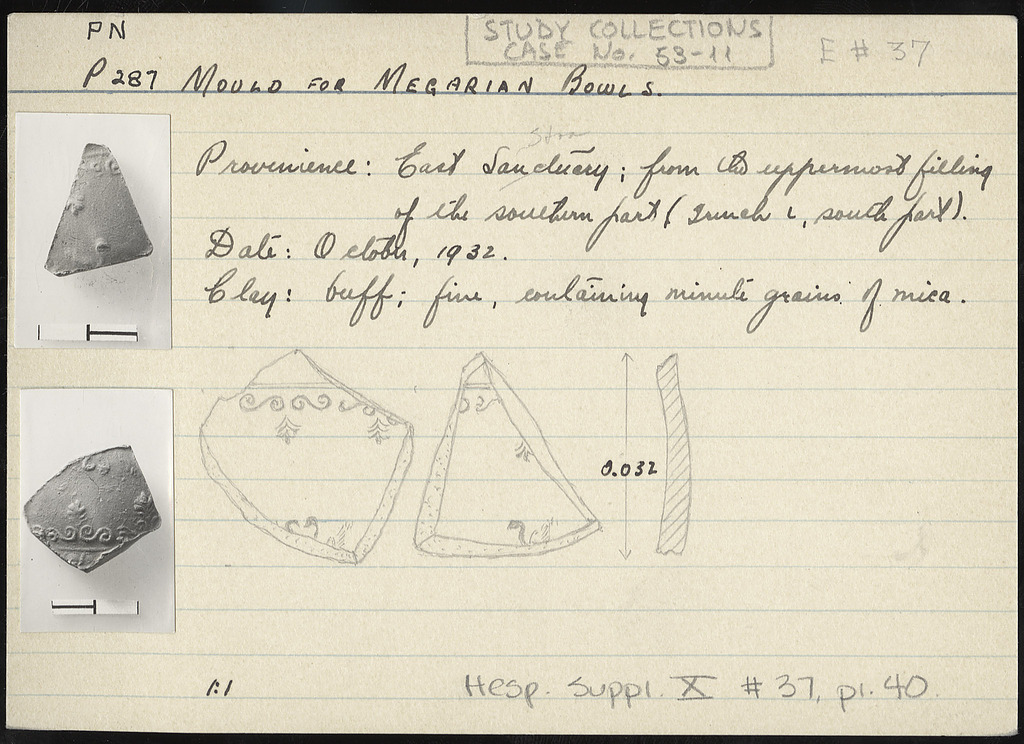 PN
STUDY COLLECTIONS
CASE No. 53-11
E # 37
P 287 MOULD FOR MEGARIAN BOWLS.
Stoa
Provenience: East Sanctuary; from the uppermost filling
of the southern part (Trench L, south part).
Date: October, 1932.
Clay: buff; fine, containing minute grains of mica.
0.032
1:1
Hesp. Suppl. X # 37, pl. 40